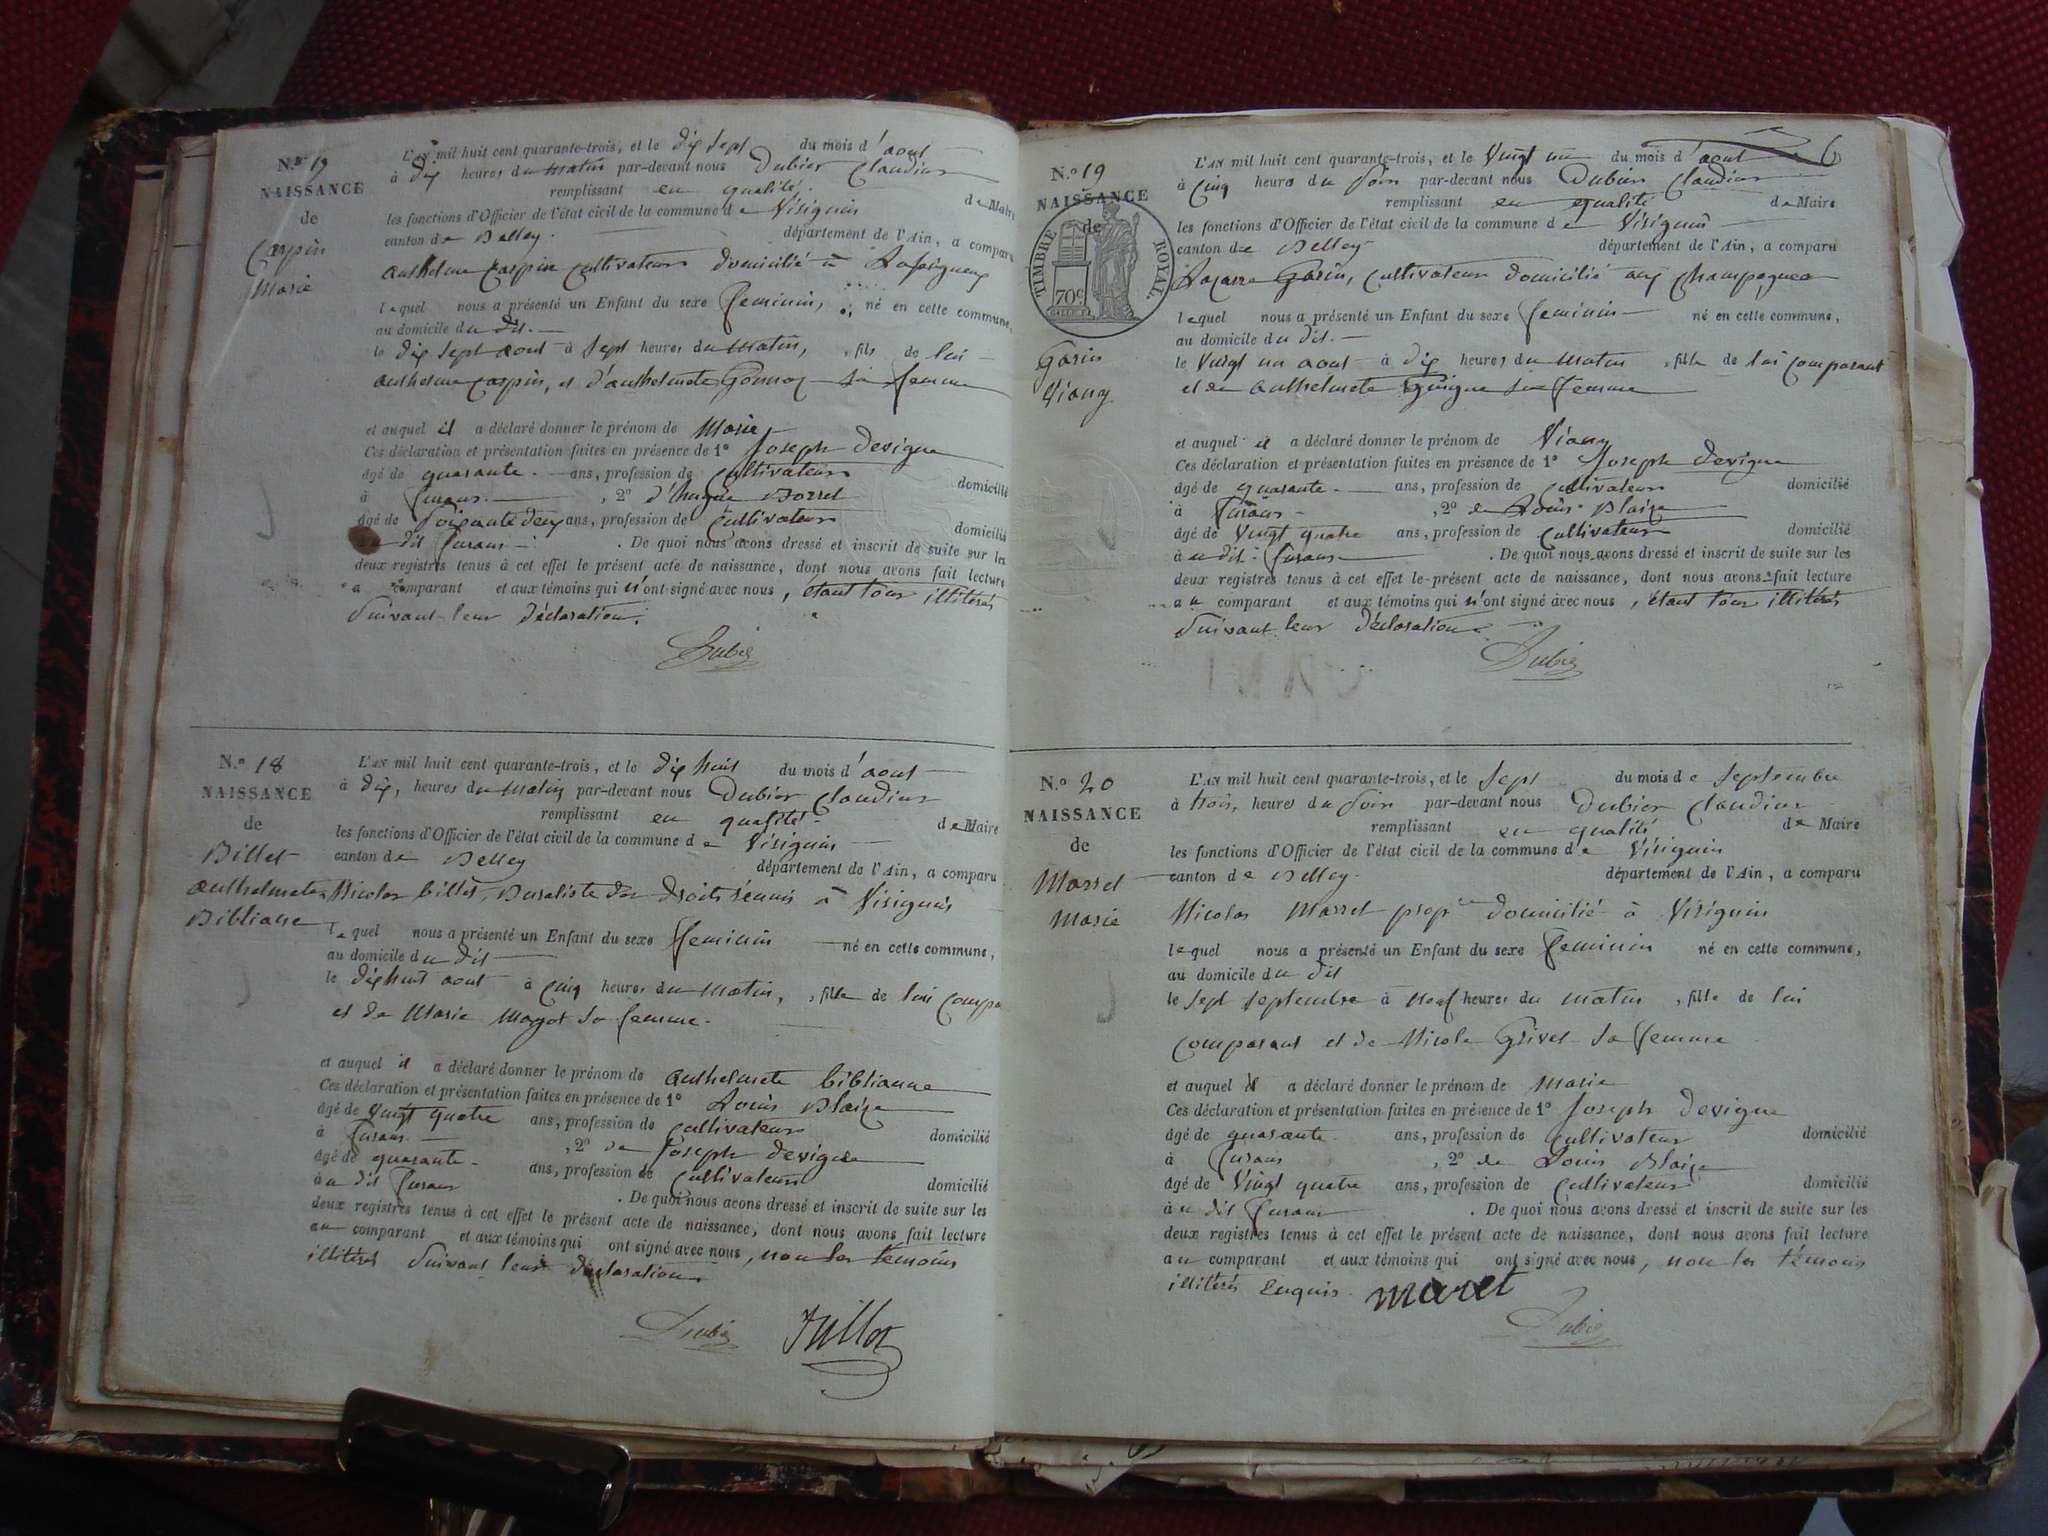 N.º 17
NAISSANCE
de
Carpin
Marie
L'AN mil huit cent quarante-trois, et le dix sept du mois d'aout
à dix heures du matin par-devant nous Dubier Claudius
remplissant en qualité de Maire
les fonctions d'Officier de l'état civil de la commune de Virignin
canton de Belley département de l'Ain, a comparu
anthelme Carpin cultivateur domicilié à
lequel nous a présenté un Enfant du sexe feminin, né en cette commune,
au domicile du dit
le dix sept aout à sept heures du matin, fils de lui
anthelme Carpin, et d'anthelmete sa femme
et auquel il a déclaré donner le prénom de Marie
Ces déclaration et présentation faites en présence de 1º Joseph Devigue
âgé de quarante ans, profession de cultivateur domicilié
à furans, 2º d'hugue Borrel
âgé de soixante deux ans, profession de cultivateur domicilié
dit furans. De quoi nous avons dressé et inscrit de suite sur les
deux registres tenus à cet effet le présent acte de naissance, dont nous avons fait lecture
a comparant et aux témoins qui n'ont signé avec nous, étant tous illitérés
suivant leur déclaration.
Dubier
N.º 18
NAISSANCE
de
Billet
anthelmete
Bibliane
L'AN mil huit cent quarante-trois, et le dix huit du mois d'aout
à dix, heures du matin par-devant nous Dubier Claudius
remplissant en qualité de Maire
les fonctions d'Officier de l'état civil de la commune de Virignin
canton de Belley département de l'Ain, a comparu
Nicolas billet, Buraliste des droits réunis à Virignin
lequel nous a présenté un Enfant du sexe feminin né en cette commune,
au domicile du dit
le dix huit aout à cinq heures du matin, fille de lui compa
et de Marie Magot sa femme.
et auquel il a déclaré donner le prénom de anthelmete biblianne
Ces déclaration et présentation faites en présence de 1º Louis Blaize
âgé de vingt quatre ans, profession de cultivateur
à furans domicilié
, 2º de Joseph devigue
âgé de quarante ans, profession de cultivateur
à u dit furans domicilié
. De quoi nous avons dressé et inscrit de suite sur les
deux registres tenus à cet effet le présent acte de naissance, dont nous avons fait lecture
au comparant et aux témoins qui ont signé avec nous, non les témoins
illitérés suivant leur déclaration
Dubier
N.º 19
NAISSANCE
de
TIMBRE ROYAL.
70c
Garin
Viany
6
L'AN mil huit cent quarante-trois, et le vingt un du mois d'aout
à cinq heures du soir par-devant nous Dubier Claudius
remplissant en qualité de Maire
les fonctions d'Officier de l'état civil de la commune de Virignin
canton de Belley département de l'Ain, a comparu
Lazare Garin, cultivateur domicilié aux champagnes
lequel nous a présenté un Enfant du sexe feminin né en cette commune,
au domicile du dit.
le vingt un aout à dix heures du matin, fille de lui comparant
et de anthelmete sa femme
et auquel il a déclaré donner le prénom de Viany
Ces déclaration et présentation faites en présence de 1º Joseph devigue
âgé de quarante ans, profession de cultivateur domicilié
à furans, 2º de Louis Blaize
âgé de vingt quatre ans, profession de cultivateur domicilié
à u dit furans. De quoi nous avons dressé et inscrit de suite sur les
deux registres tenus à cet effet le présent acte de naissance, dont nous avons fait lecture
au comparant et aux témoins qui n'ont signé avec nous, étant tous illitérés
suivant leur déclaration
Dubier
N.º 20
NAISSANCE
de
Marret
Marie
L'AN mil huit cent quarante-trois, et le sept du mois de septembre
à trois, heures du soir par-devant nous Dubier Claudius
remplissant en qualité de Maire
les fonctions d'Officier de l'état civil de la commune de Virignin
canton de Belley. département de l'Ain, a comparu
Nicolas Marret propre domicilié à Virignin
lequel nous a présenté un Enfant du sexe feminin né en cette commune,
au domicile du dit
le sept septembre à neuf heures du matin, fille de lui
comparant et de Nicole Grivet sa femme
et auquel il a déclaré donner le prénom de Marie
Ces déclaration et présentation faites en présence de 1º Joseph devigue
âgé de quarante ans, profession de cultivateur domicilié
à furans, 2º de Louis Blaize
âgé de vingt quatre ans, profession de cultivateur domicilié
à u dit furans. De quoi nous avons dressé et inscrit de suite sur les
deux registres tenus à cet effet le présent acte de naissance, dont nous avons fait lecture
au comparant et aux témoins qui ont signé avec nous, non les témoins
illitérés enquis. maret
Dubier